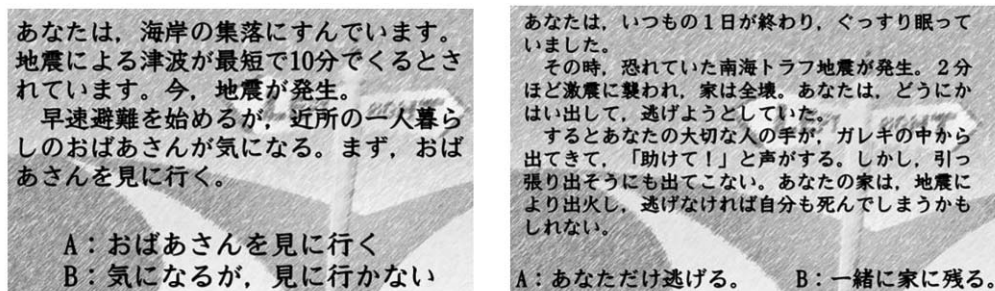 あなたは，海岸の集落にすんでいます。
地震による津波が最短で10分でくるとさ
れています。今，地震が発生。
　早速避難を始めるが，近所の一人暮ら
しのおばあさんが気になる。まず，おば
あさんを見に行く。
A：おばあさんを見に行く
B：気になるが，見に行かない
あなたは，いつもの１日が終わり，ぐっすり眠って
いました。
　その時，恐れていた南海トラフ地震が発生。２分
ほど激震に襲われ，家は全壊。あなたは，どうにか
はい出して，逃げようとしていた。
　するとあなたの大切な人の手が，ガレキの中から
出てきて，「助けて！」と声がする。しかし，引っ
張り出そうにも出てこない。あなたの家は，地震に
より出火し，逃げなければ自分も死んでしまうかも
しれない。
A：あなただけ逃げる。　　B：一緒に家に残る。